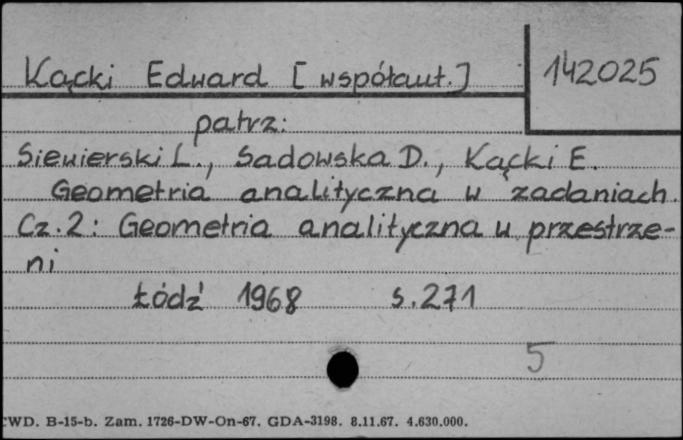 Kącki Edward [współaut.] 142025
patrz:
Siewierski L., Sadowska D., Kącki E.
Geometria analityczna w zadaniach.
Cz. 2: Geometria analityczna w przestrze-
ni
Łódź 1968 s. 271
5
CWD. B-15-b. Zam. 1726-DW-On-67. GDA-3198. 8.11.67. 4.630.000.